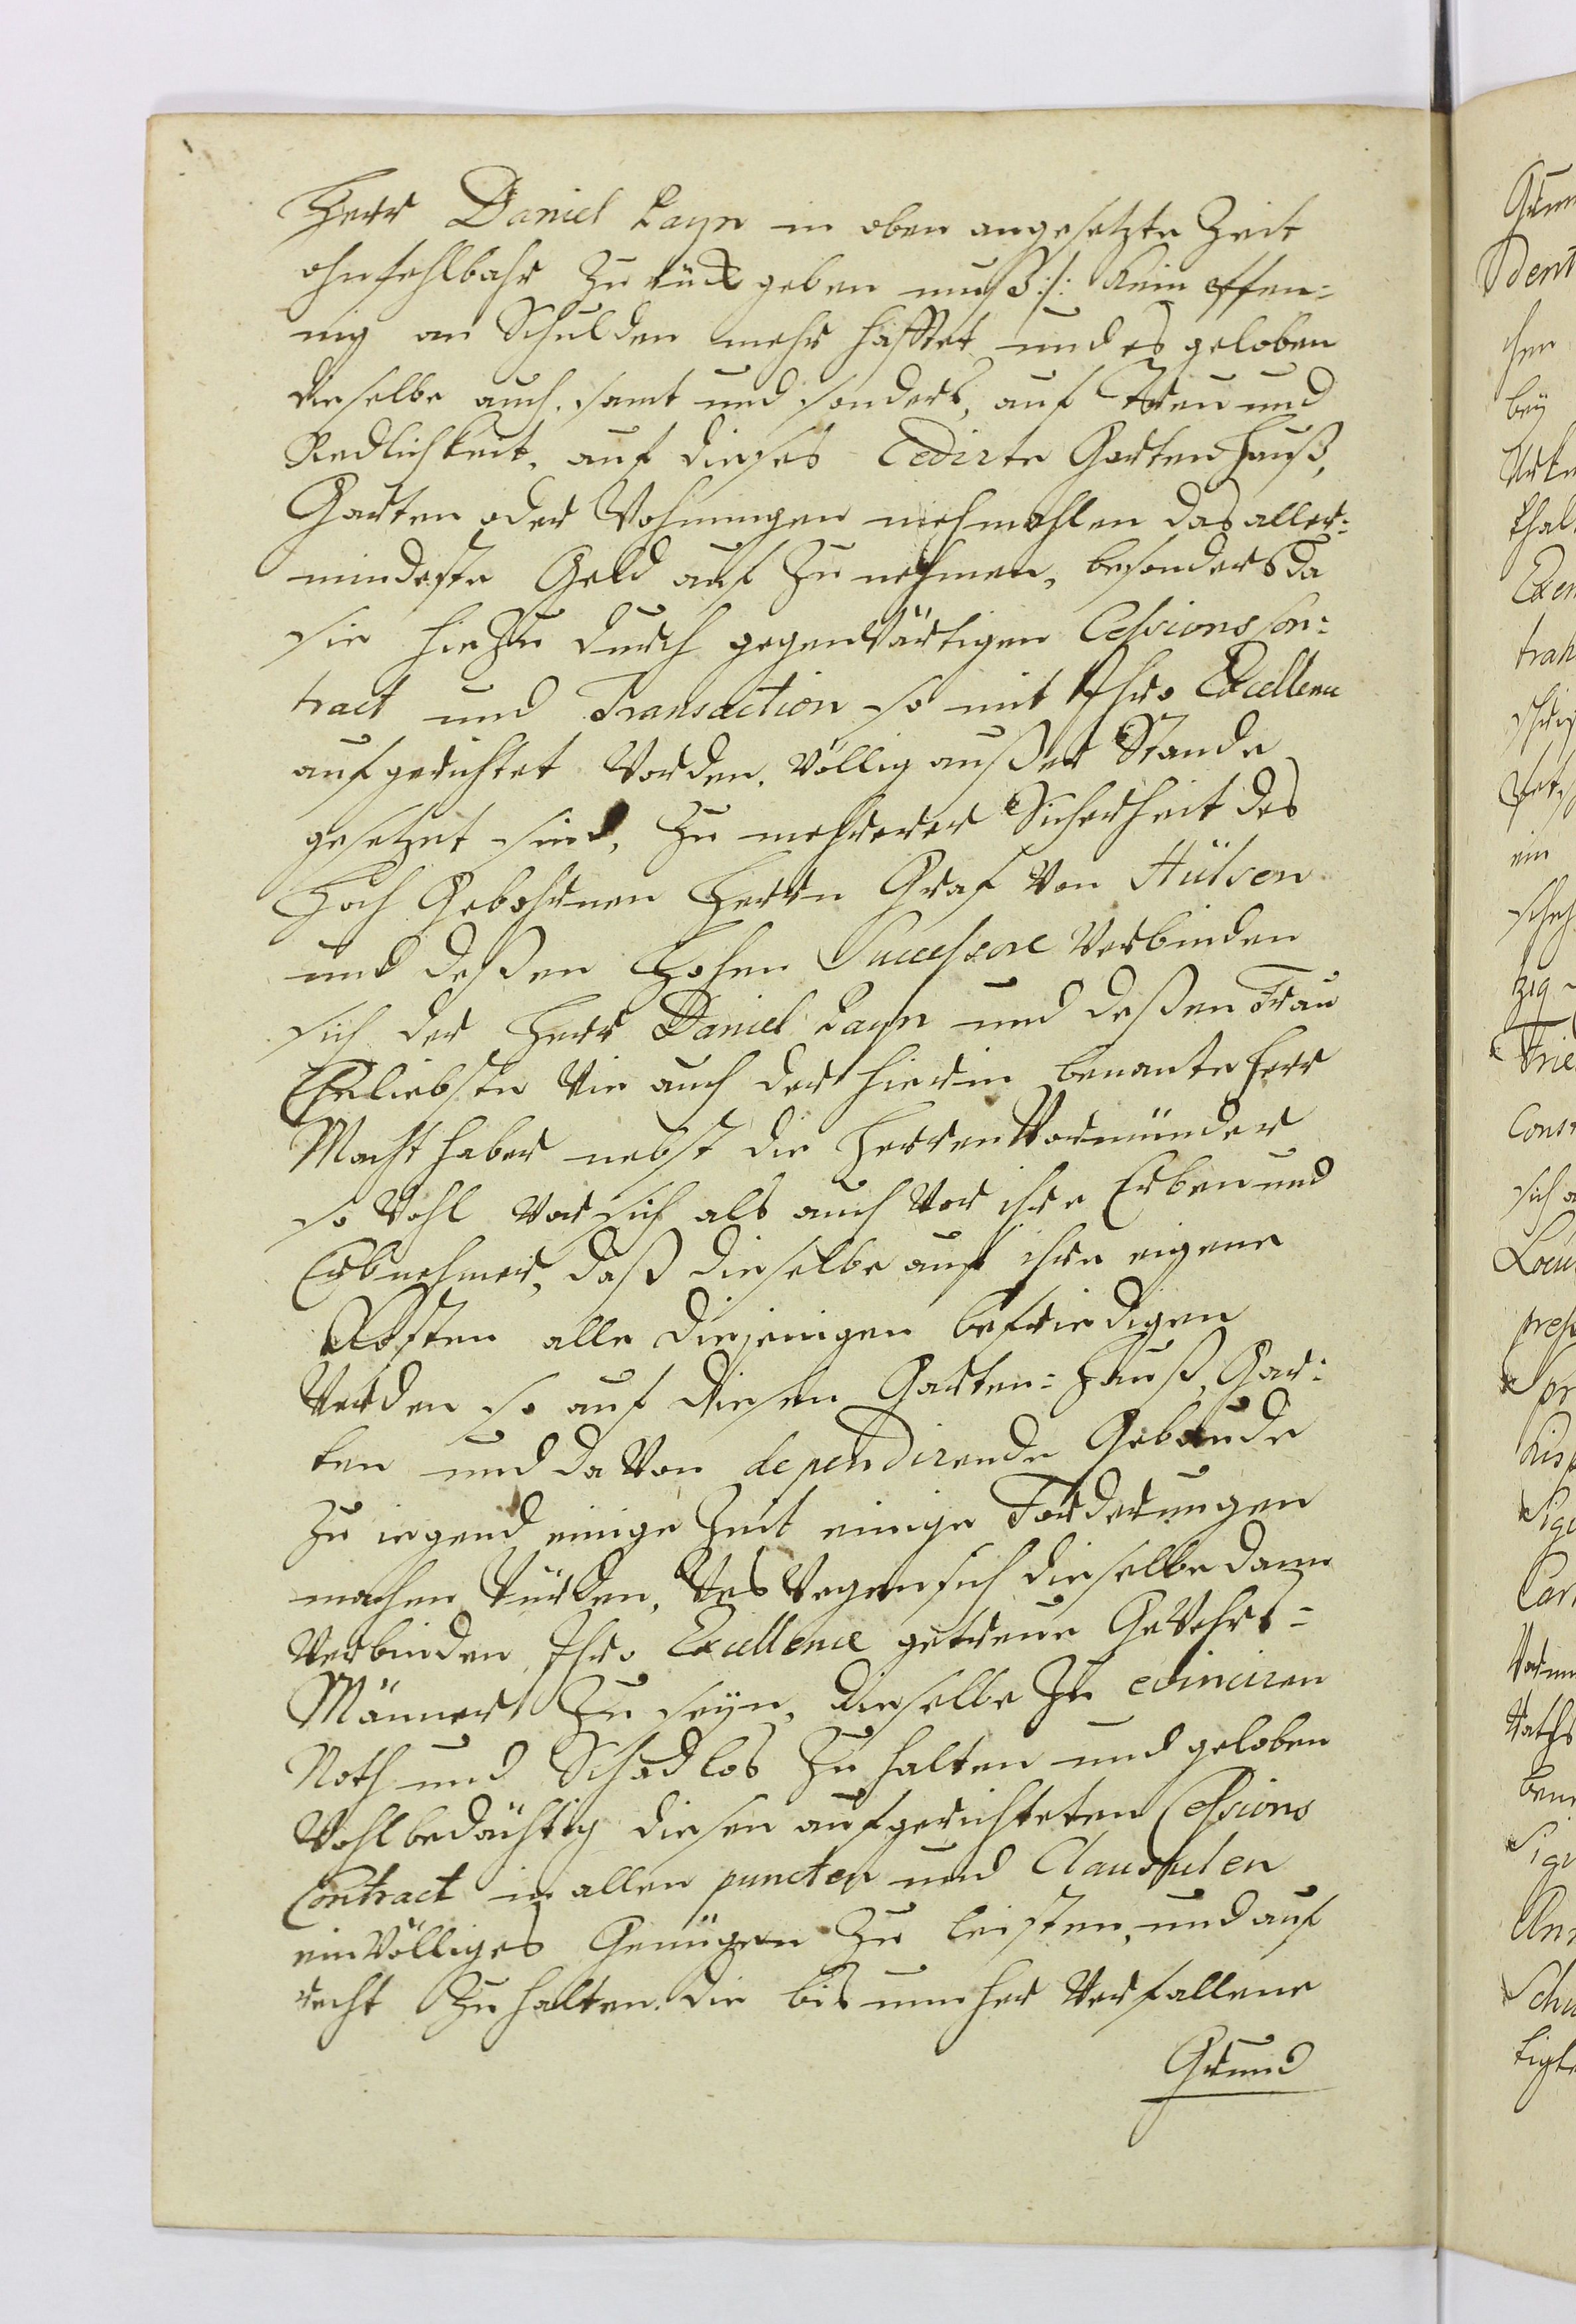 Herr Daniel Layn in oben angesetzte Zeit
ohnfehlbahr zu rück geben muß :/: kein Pfen=
nig an Schulden mehr hafftet und es geloben
dieselbe auch, samt und sonders, auf Treu und
Redlichkeit, auf dieses Cedirte Gartenhauß,
Garten oder Wohnungen niehmahlen das aller=
mindeste Geld auf zu nehmen, besonders da
sie hiezu durch gegenwärtigen Cessions Con=
tract und Transaction so mit Ihro Excellence
aufgerichtet worden, völlig außer Stande
gesetzet sind, Zu mehrerer Sicherheit des
Hoch Gebohrnen Herrn Graf von Hülsen
und deßen Hohen Successore verbinden
sich der Herr Daniel Layn und deßen Frau
Eheliebste wie auch der hierin benante Herr
Macht haber nebst die Herren Vormünder
so wohl vor sich als auch vor ihre Erben und
Erbnehmer, daß dieselbe auf ihre eigene
Kosten alle diejenigen befriedigen
werden so auf diesen Garten=Hauß, Gar=
ten und davon dependirende Gebäude
zu irgend einige Zeit einige Forderungen
machen würden, Weswegen sich dieselbe dann
verbinden Ihro Excellence getreue Gewehrs=
Männer zu seyn, dieselbe zu evinciren
Noth und Schadlos zu halten und geloben
Wohlbedächtig diesen aufgerichteten Cessions
Contract in allen puncten und Clausulen
ein völliges Genügen zu leisten, und auf
recht zu halten. die bis nunher verfallene
Grund